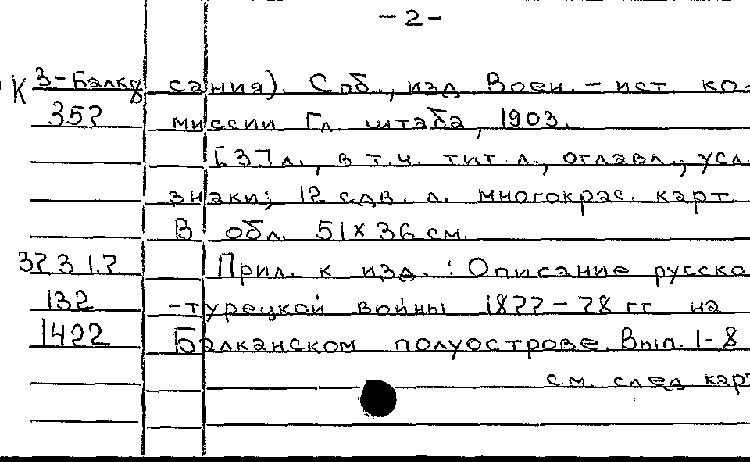 -2-
К 3-Балка сания). Спб., изд. Воен.-ист. ко-
357 миссии Гл. штаба, 1903.
[37 л., в т.ч. тит. л., оглавл., усл.
знаки; 12 сдв. л. многокрас. карт.
В обл. 51х36 см.
37317 Прил. к изд.: Описание русско
132 -турецкой войны 1877-78 гг. на
1477 Балканском полуострове. Вып. 1-8
см. след карт